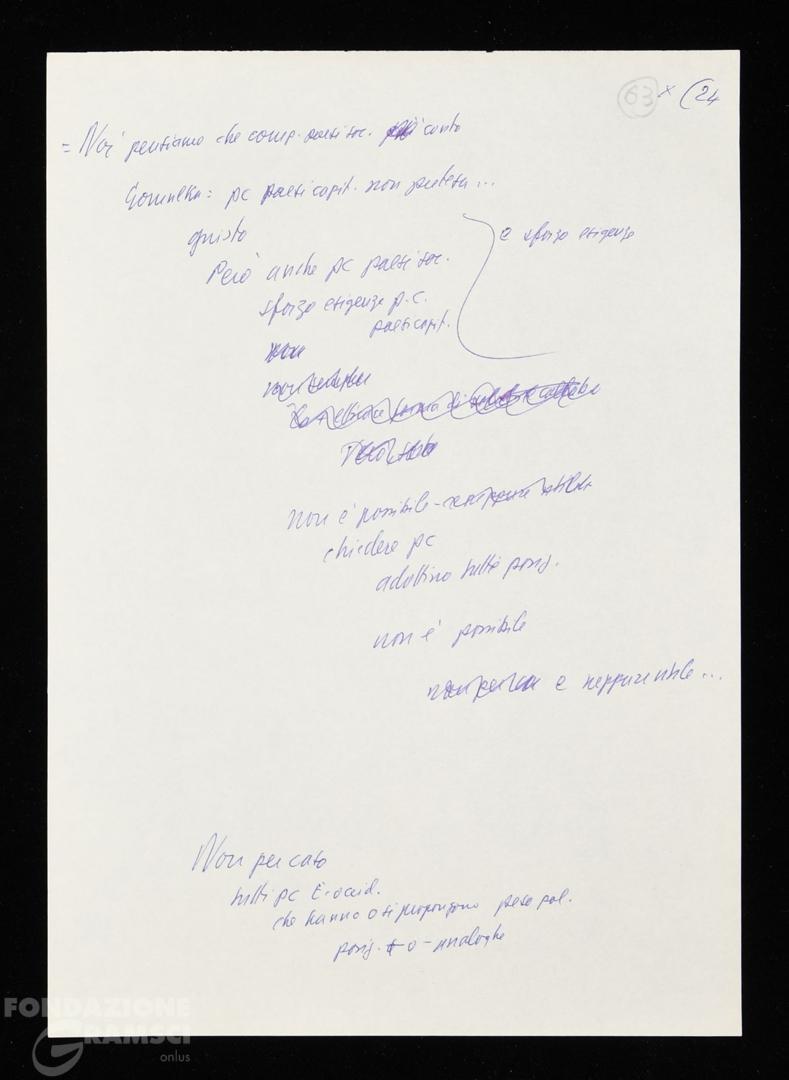 63 x (24
= Noi pensiamo che comp. paesi soc. più conto
Gomulka: pc paesi capit. non pretesa...
giusto
Però anche pc paesi soc.
e sforzo esigenze
sforzo esigenze p.c.
paesi capit.
non
Non è possibile -
chiedere pc
adottino tutte posiz.
non è possibile
e neppure utile...
Non per caso
tutti pc E. occid.
che hanno o si propongono peso pol.
posiz. + o - analoghe
FONDAZIONE
GRAMSCI
onlus